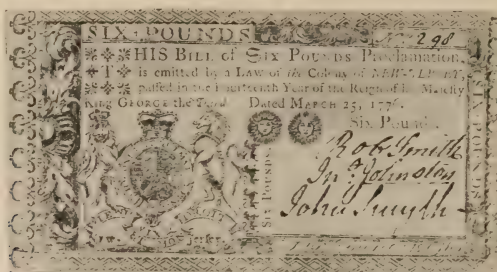 SIX POUNDS No 298
THIS BILL of SIX POUNDS Proclamation,
is emitted by a Law of the Colony of NEW-JERSEY,
passed in the Fourteenth Year of the Reign of his Majesty
King GEORGE the Third. Dated MARCH 25, 1776.
Six Pounds
Robt Smith
Jno Johnston
John Smyth
SIX POUNDS
SIX POUNDS